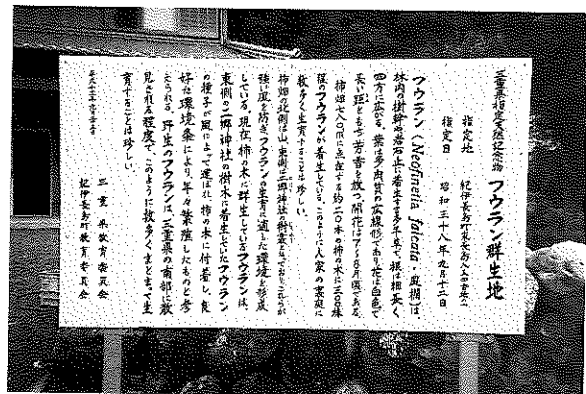 三重県指定天然記念物 フウラン群生地
指定地 紀伊長島町東長島
指定日 昭和三十八年 月十二日
フウラン(Neofinetia falcata・風蘭)は、
林内の樹幹や岩石上に着生する多年草で、根は細長く
四方に広がる。葉は多肉質の広線形であり花は白色で
長い距をもち、芳香を放つ。開花は 月頃である。
柿畑 に点在する約二〇本の柿の木に三〇〇株
程のフウランが着生している。このように人家の裏庭に
数多く生育することは珍しい。
柿畑の北側は山、東側は二郷神社の樹叢となっており、これらが
強い風を防ぎ、フウランの生育に適した環境を形成
している。現在、柿の木に群生しているフウランは、
東側の二郷神社の樹木に着生していたフウラン
の種子が風によって運ばれ、柿の木に付着し、良
好な環境条件により、年々繁殖したものと考
えられる。野生のフウランは、三重県の南部に散
見される程度で、このように数多くまとまって生
育することは珍しい。
三重県教育委員会
紀伊長島町教育委員会